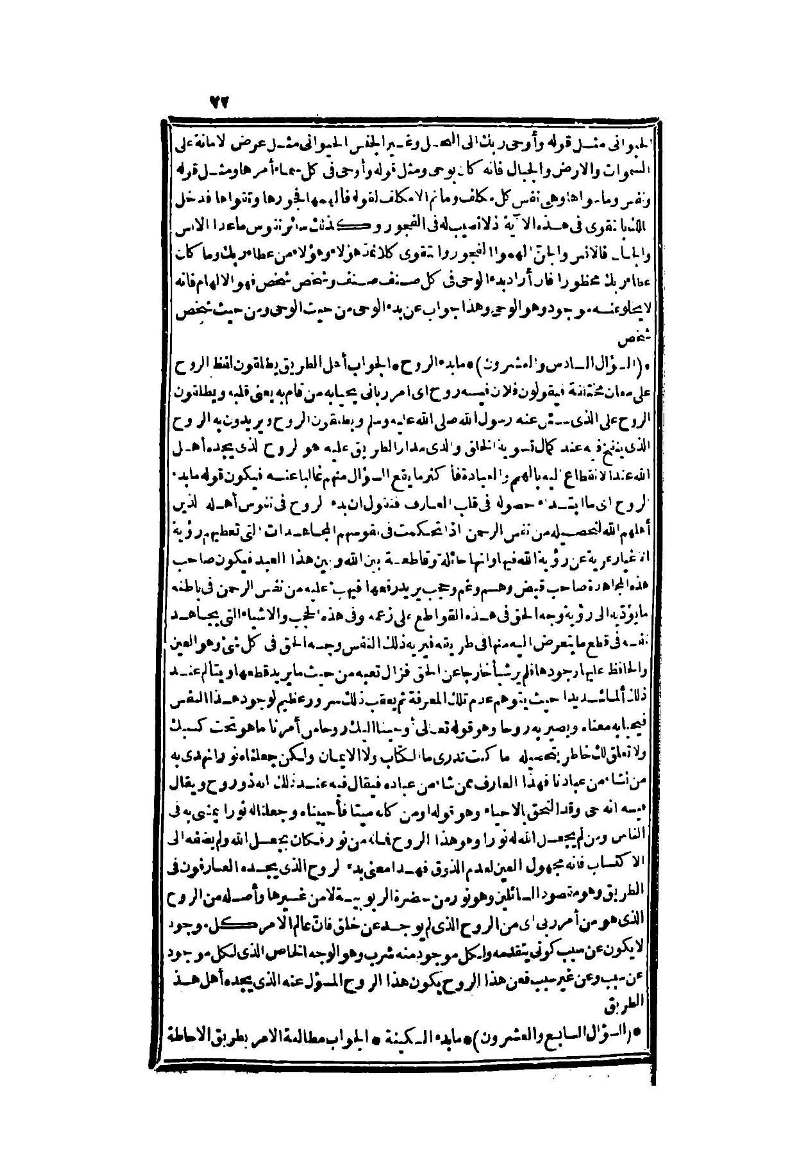 ٧٢
الحيوانى مثل قوله وأوحى ربك الى النحل وغير الجنس الحيوانى مثل عرض الامانة على
السموات والارض والجبال فانه كان بوحى ومثل قوله وأوحى فى كل سماء أمرها ومثل قوله
ونفس وما سواها وهى نفس كل مكلف وما ثم الا مكلف لقوله فألهمها فجورها وتقواها فدخل
الملك بالتقوى فى هذه الآية اذ لا نصيب له فى الفجور وكذلك سائر نفوس ما عدا الانس
والجان فالانس والجن ألهموا الفجور والتقوى كلا نمد هؤلاء وهؤلاء من عطاء ربك وما كان
عطاء ربك محظورا فان أراد بدء الوحى فى كل صنف صنف وشخص شخص فهو الالهام فانه
لا يخلو عنه موجود وهو الوحى وهذا جواب عن بدء الوحى من حيث الوحى ومن حيث شخص
شخص
* (السؤال السادس والعشرون) * ما بدء الروح * الجواب أهل الطريق يطلقون لفظ الروح
على معان مختلفة فيقولون فلان فيه روح اى امر ربانى يحيا به من قام به يعنى قلبه ويطلقون
الروح على الذى سئل عنه رسول الله صلى الله عليه وسلم ويطلقون الروح ويريدون به الروح
الذى ينفخ فيه عند كمال تسوية الخلق والذى مدار الطريق عليه هو الروح الذى يجده أهل
الله عند الانقطاع اليه بالهمم والعبادة فأكثر ما يقع السؤال منهم غالبا عنه فيكون قوله ما بدء
الروح اى ما ابتداء حصوله فى قلب العارف فنقول ان بدء الروح فى نفوس أهله الذين
أهلهم الله لتحصيله من نفس الرحمن اذا تحكمت فى نفوسهم المجاهدات التى تعطيهم رؤية
الاغيار عرية عن رؤية الله فيها وانها حائلة وقاطعة بين الله وبين هذا العبد فيكون صاحب
هذه المجاهدة صاحب قبض وهم وغم وحجب يريد رفعها فيهب عليه من نفس الرحمن فى باطنه
ما يؤديه الى رؤية وجه الحق فى هذه القواطع على زعمه وفى هذه الحجب والاشياء التى يجاهد
نفسه فى قطع ما يتعرض اليه منها فى طريقه فيريه ذلك النفس وجه الحق فى كل شئ وهو العين
والحافظ عليها وجودها فلم ير شيأ خارجا عن الحق فزال تعبه من حيث ما يريد قطعها ويتألم عند
ذلك ألما شديدا حيث يتوهم عدم تلك المعرفة ثم يعقب ذلك سرور عظيم لوجود هذا النفس
فيحيا به معناه ويصير به روحا وهو قوله تعالى أوحينا اليك روحا من أمرنا ما هو تحت كسبك
ولا تعلق لك خاطر بتحصيله ما كنت تدرى ما الكتاب ولا الايمان ولكن جعلناه نورا نهدى به
من نشاء من عبادنا فهذا العارف ممن شاء من عباده فيقال فيه عند ذلك انه ذو روح ويقال
فيه انه حى وقد التحق بالاحياء وهو قوله أومن كان ميتا فأحييناه وجعلنا له نورا يمشى به فى
الناس ومن لم يجعل الله له نورا وهو هذا الروح فما له من نور فكان بجعل الله ولم يضفه الى
الاكتساب فانه مجهول العين لعدم الذوق فهذا معنى بدء الروح الذى يجده العارفون فى
الطريق وهو مقصود السائلين وهو نور من حضرة الربوبية لا من غيرها وأصله من الروح
الذى هو من أمر ربى اى من الروح الذى لم يوجد عن خلق فان عالم الامر كل موجود
لا يكون عن سبب كونى يتقدمه ولكل موجود منه شرب وهو الوجه الخاص الذى لكل موجود
عن سبب وعن غير سبب فعن هذا الروح يكون هذا الروح المسؤل عنه الذى يجده أهل هذا
الطريق
* (السؤال السابع والعشرون) * ما بدء السكينة * الجواب مطالعة الامر بطريق الاحاطة